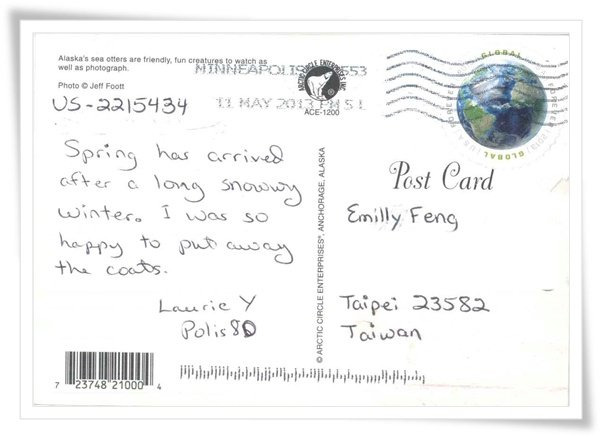 Alaska's sea otters are friendly, fun creatures to watch as
well as photograph.
Photo © Jeff Foott
MINNEAPOLIS 553
11 MAY 2013 PM 5 L
ARCTIC CIRCLE ENTERPRISES INC
ACE-1200
GLOBAL
FOREVER
GLOBAL
FOREVER
US-2215434
Spring has arrived
after a long snowy
winter. I was so
happy to put away
the coats.
Laurie Y
Polis80
Post Card
Emilly Feng
Taipei 23582
Taiwan
© ARCTIC CIRCLE ENTERPRISES®, ANCHORAGE, ALASKA
7 23748 21000 4